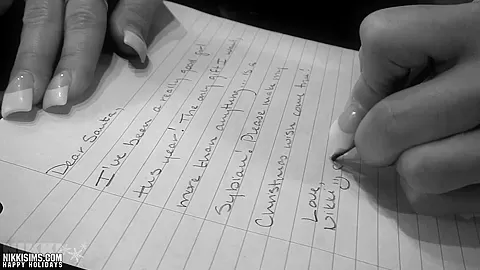 Dear Santa,
I've been a really good girl
this year! The only gift I want
more than anything... is a
Sybian. Please make my
Christmas wish come true!
Love,
Nikki
NIKKISIMS.COM
HAPPY HOLIDAYS